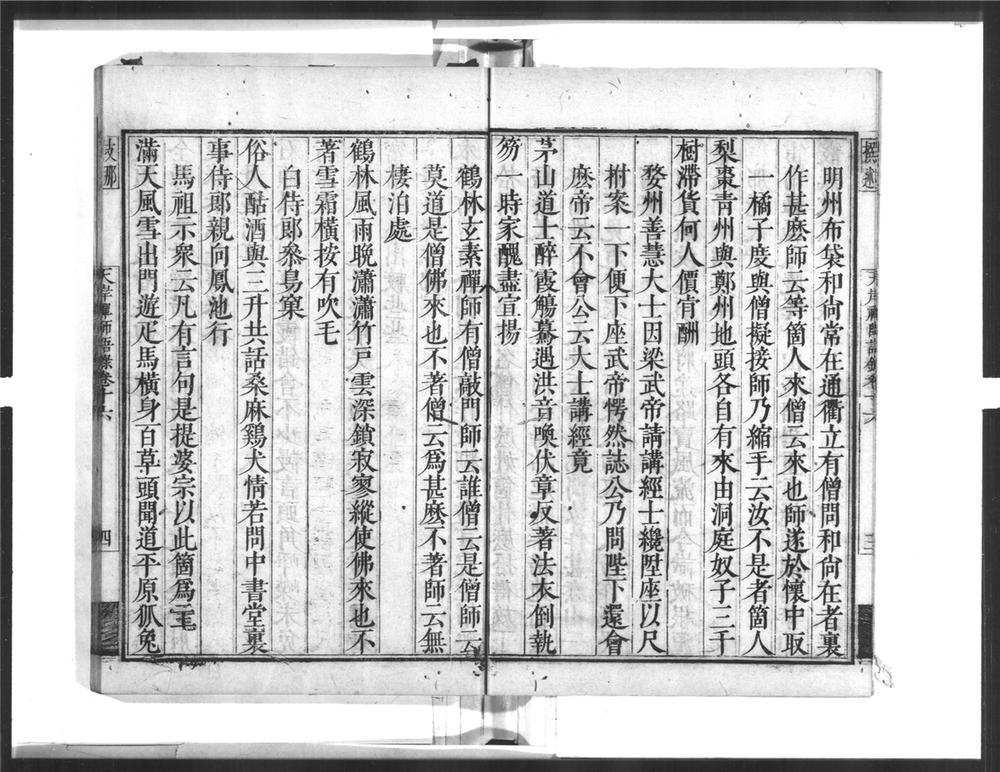 明州布袋和尚常在通衢立有僧問和尚在者裏
作甚麽師云等箇人來僧云來也師遂於懷中取
一橘子度與僧擬接師乃縮手云汝不是者箇人
梨棗青州與鄭州地頭各自有來由洞庭奴子三千
樹滯貨何人價肯酬
婺州善慧大士因梁武帝請講經士纔陞座以尺
柎案一下便下座武帝愕然誌公乃問陛下還會
麽帝云不會公云大士講經竟
茅山道士醉霞觴驀遇洪音喚伏章反著法衣倒執
笏一時家醜盡宣揚
鶴林玄素禪師有僧敲門師云誰僧云是僧師云
莫道是僧佛來也不著僧云爲甚麽不著師云無
棲泊處
鶴林風雨晚瀟瀟竹戸雲深鎖寂寥縱使佛來也不
著雪霜橫按有吹毛
白侍郎叅鳥窠
俗人酤酒與三升共話桑麻鷄犬情若問中書堂裏
事侍郎親向鳳池行
馬祖示衆云凡有言句是提婆宗以此箇爲主
滿天風雪出門遊疋馬橫身百草頭聞道平原狐兔
天岸禪師語錄卷十六
四